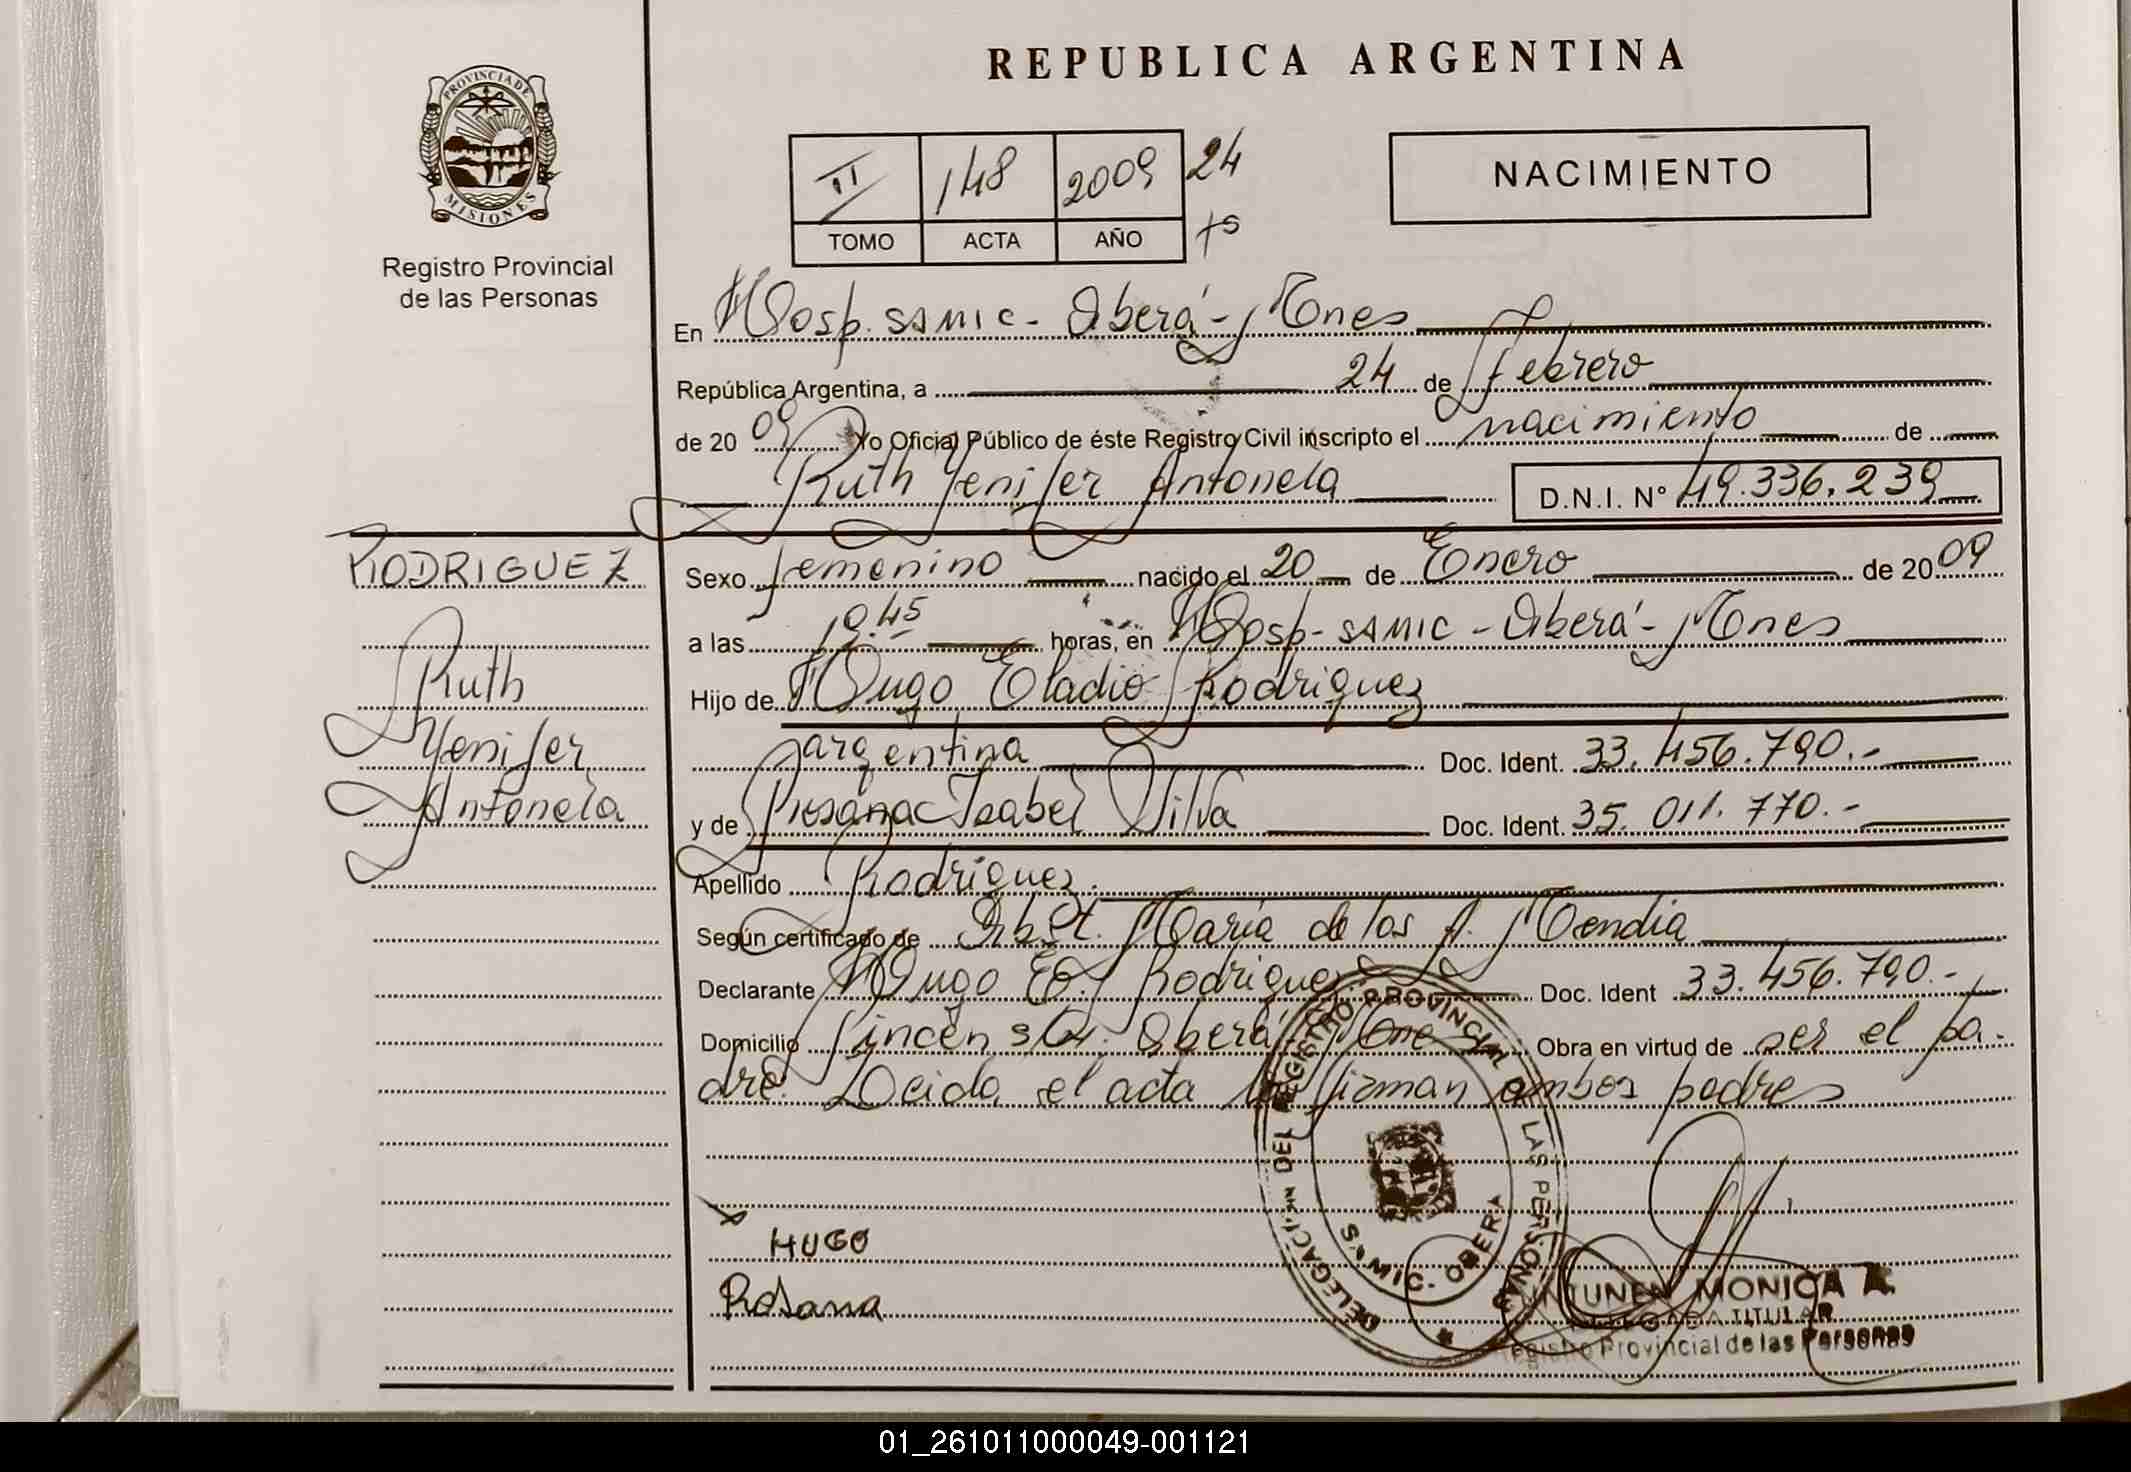 REPUBLICA ARGENTINA
PROVINCIA DE
MISIONES
Registro Provincial
de las Personas
II 148 2009 24
TOMO ACTA AÑO
NACIMIENTO
En Hosp. SAMIC - Oberá - Mnes
República Argentina, a 24 de Febrero
de 20 09 Yo Oficial Público de éste Registro Civil inscripto el nacimiento de
Ruth Yenifer Antonela D.N.I. N° 49.336.239
RODRIGUEZ
Ruth
Yenifer
Antonela
Sexo femenino nacido el 20 de Enero de 20 09
a las horas, en Hosp - SAMIC - Oberá - Mnes
Hijo de Hugo Eladio Rodriguez
argentina Doc. Ident. 33.456.790.-
y de Rosana Isabel Silva Doc. Ident. 35.011.770.-
Apellido Rodriguez.
Según certificado de Obst. María de los A. Mendia
Declarante Hugo E. Rodriguez Doc. Ident 33.456.790.-
Domicilio Oberá Obra en virtud de ser el pa-
dre. Leida el acta la firman ambos padres
HUGO
Rosana
DELEGACION DEL REGISTRO PROVINCIAL DE LAS PERSONAS
SAMIC. OBERA
MONICA A.
TITULAR
Registro Provincial de las Personas
01_261011000049-001121